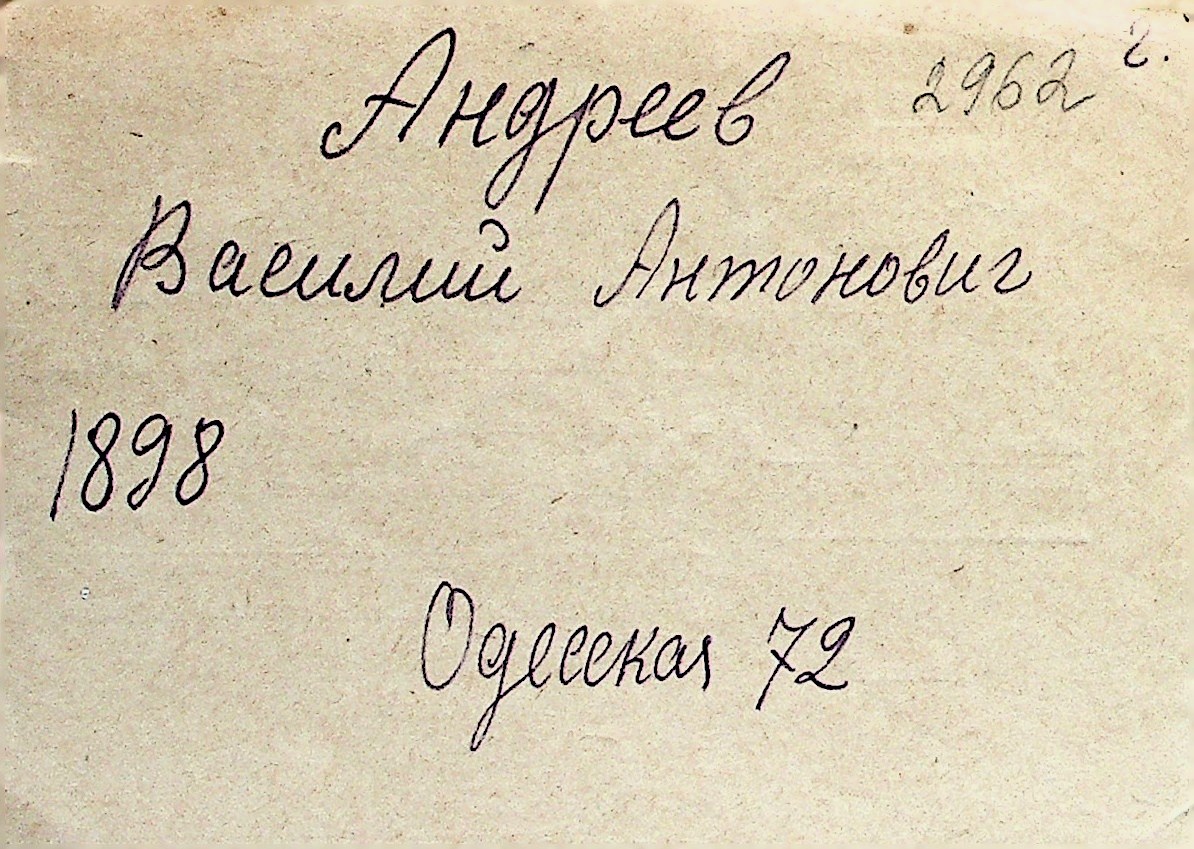 Андреев 2962 г.
Василий Антонович
1898
Одесская 72